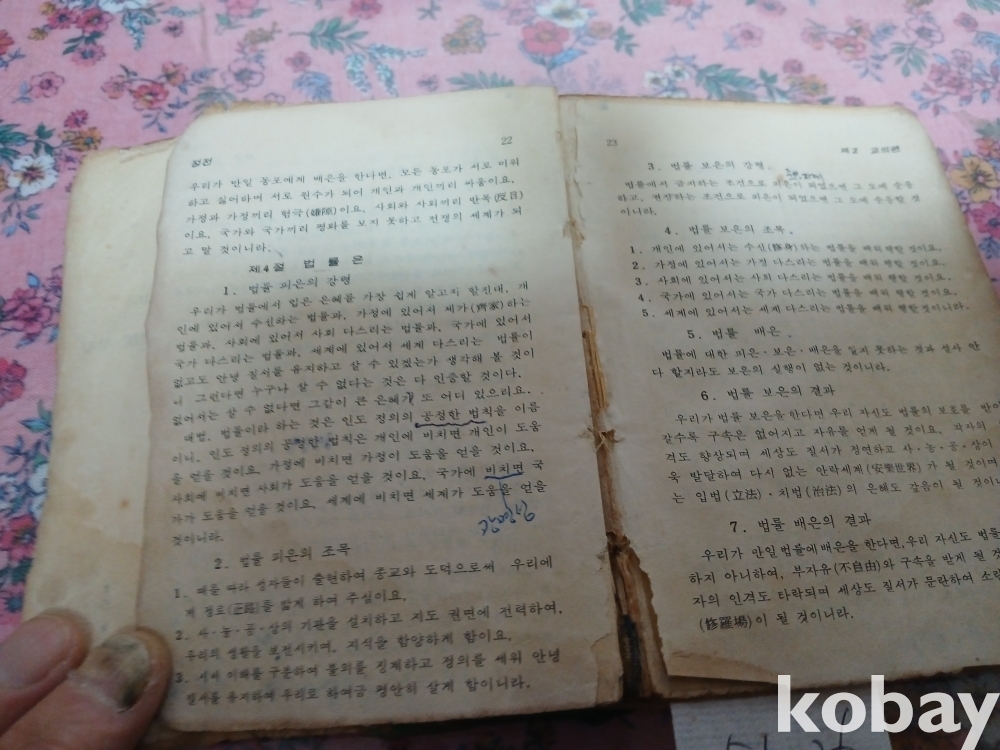 22
정전
우리가 만일 동포에게 배은을 한다면, 모든 동포가 서로 미워
하고 싫어하며 서로 원수가 되어 개인과 개인끼리 싸움이요,
가정과 가정끼리 혐극(嫌隙)이요, 사회와 사회끼리 반목(反目)
이요, 국가와 국가끼리 평화를 보지 못하고 전쟁의 세계가 되
고 말 것이니라.
제4절 법률은
1. 법률 피은의 강령
우리가 법률에서 입은 은혜를 가장 쉽게 알고자 할진대, 개
인에 있어서 수신하는 법률과, 가정에 있어서 제가(齊家)하는
법률과, 사회에 있어서 사회 다스리는 법률과, 국가에 있어서
국가 다스리는 법률과, 세계에 있어서 세계 다스리는 법률이
없고도 안녕 질서를 유지하고 살 수 있겠는가 생각해 볼 것이
니 그런다면 누구나 살 수 없다는 것은 다 인증할 것이다.
없어서는 살 수 없다면 그같이 큰 은혜가 또 어디 있으리요.
대범, 법률이라 하는 것은 인도 정의의 공정한 법칙을 이름
이니, 인도 정의의 공정한 법칙은 개인에 비치면 개인이 도움
을 얻을 것이요, 가정에 비치면 가정이 도움을 얻을 것이요,
사회에 비치면 사회가 도움을 얻을 것이요, 국가에 비치면 국
가가 도움을 얻을 것이요, 세계에 비치면 세계가 도움을 얻을
것이니라.
2. 법률 피은의 조목
1. 때를 따라 성자들이 출현하여 종교와 도덕으로써 우리에
게 정로(正路)를 밟게 하여 주심이요,
2. 사·농·공·상의 기관을 설치하고 지도 권면에 전력하여,
우리의 생활을 보전시키며, 지식을 함양하게 함이요,
3. 시비 이해를 구분하여 불의를 징계하고 정의를 세워 안녕
질서를 유지하여 우리로 하여금 평안히 살게 함이니라.
23
제2 교의편
3. 법률 보은의 강령
법률에서 금지하는 조건으로 피은이 되었으면 그 도에 순응
하고, 권장하는 조건으로 피은이 되었으면 그 도에 순응할 것
이니라.
4. 법률 보은의 조목
1. 개인에 있어서는 수신(修身)하는 법률을 배워 행할 것이요,
2. 가정에 있어서는 가정 다스리는 법률을 배워 행할 것이요,
3. 사회에 있어서는 사회 다스리는 법률을 배워 행할 것이요,
4. 국가에 있어서는 국가 다스리는 법률을 배워 행할 것이요,
5. 세계에 있어서는 세계 다스리는 법률을 배워 행할 것이니라.
5. 법률 배은
법률에 대한 피은·보은·배은을 알지 못하는 것과 설사 안
다 할지라도 보은의 실행이 없는 것이니라.
6. 법률 보은의 결과
우리가 법률 보은을 한다면 우리 자신도 법률의 보호를 받아
갈수록 구속은 없어지고 자유를 얻게 될 것이요, 각자의
격도 향상되며 세상도 질서가 정연하고 사·농·공·상이
욱 발달하여 다시 없는 안락세계(安樂世界)가 될 것이며
는 입법(立法)·치법(治法)의 은혜도 갚음이 될 것이니
7. 법률 배은의 결과
우리가 만일 법률에 배은을 한다면, 우리 자신도 법률
하지 아니하여, 부자유(不自由)와 구속을 받게 될 것
자의 인격도 타락되며 세상도 질서가 문란하여 소란
(修羅場)이 될 것이니라.
kobay